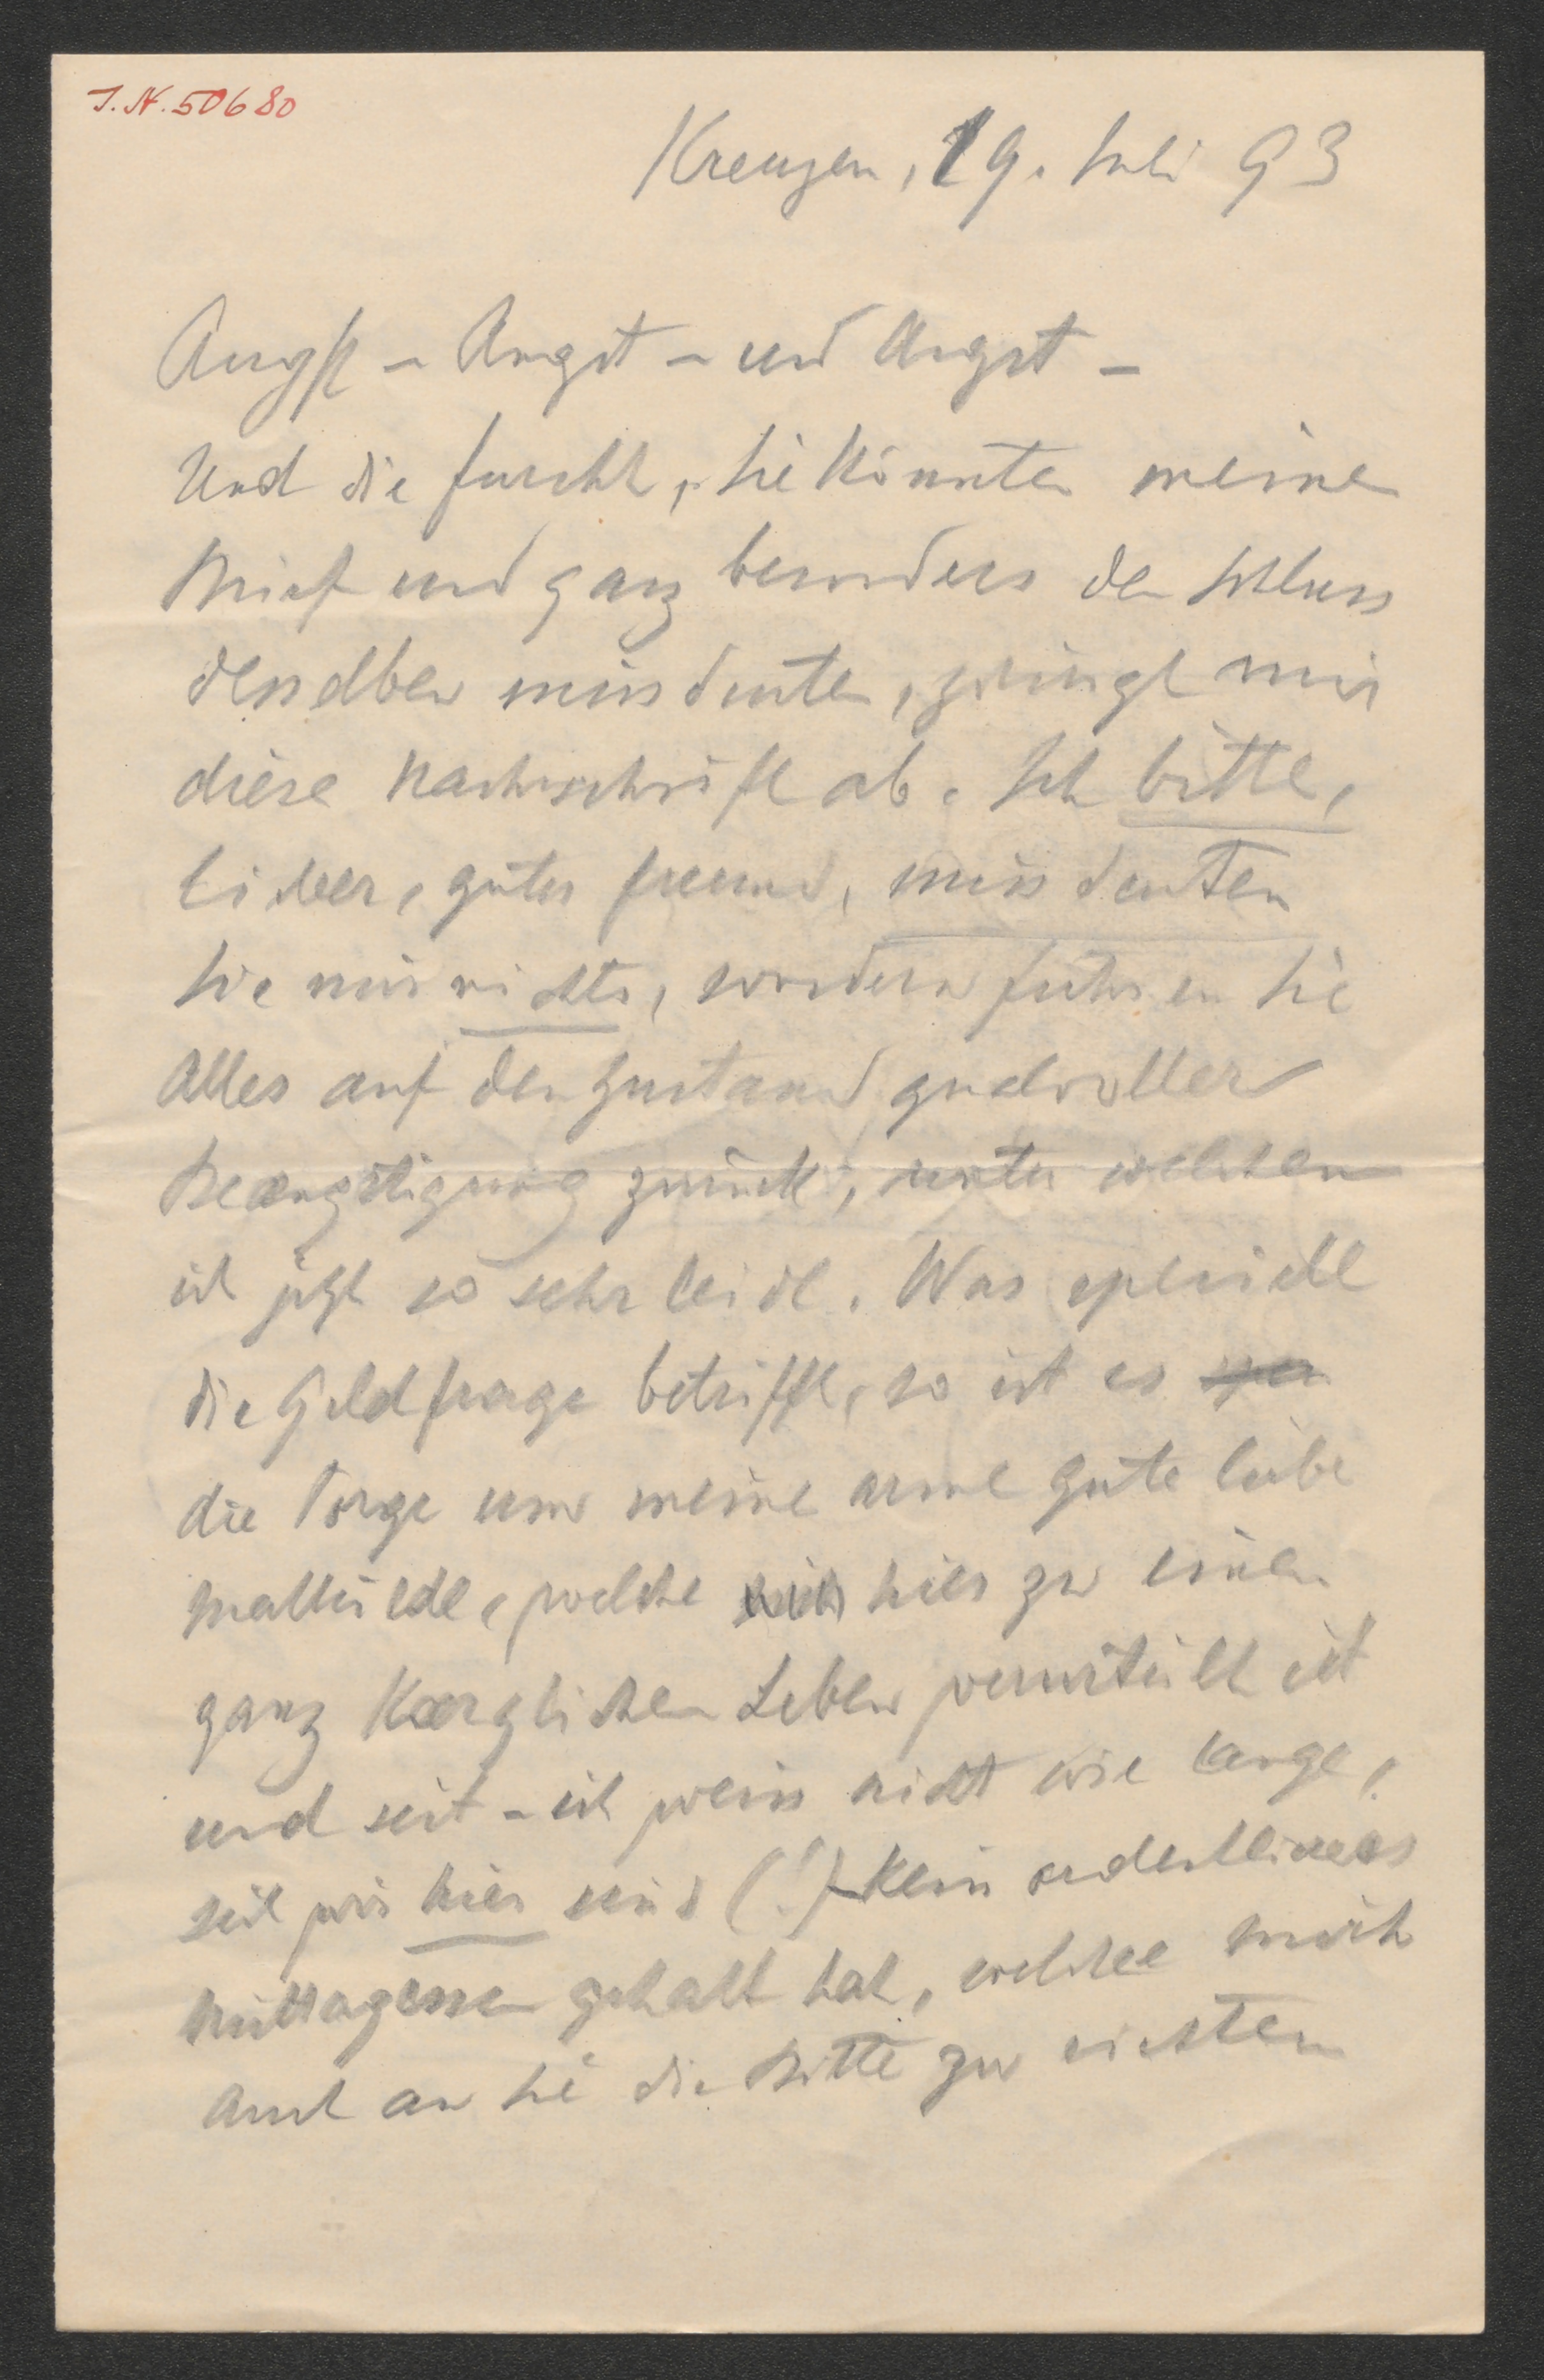 J. N. 50680
Kreuzen, 19. Juli 93
Angst – Angst – und Angst –
Und die Furcht, Sie könnten meinen
Brief und ganz besonders den Schluss
desselben missdeuten, zwingt mir
diese Nachschrift ab. Ich bitte,
lieber, guter Freund, missdeuten
Sie mir nichts, sondern führen Sie
Alles auf den Zustand qualvoller
Beaengstigung zurück, unter welchem
ich jetzt so sehr leide. Was speciell
die Geldfrage betrifft, so ist es
die Sorge um meine arme gute liebe
Mathilde, welche hier zu einem
ganz kaerglichen Leben verurteilt ist
und seit – ich weiss nicht wie lange,
seit wir hier sind (!) kein ordentliches
Mittagessen gehabt hat, welche mich
auch an Sie die Bitte zu richten